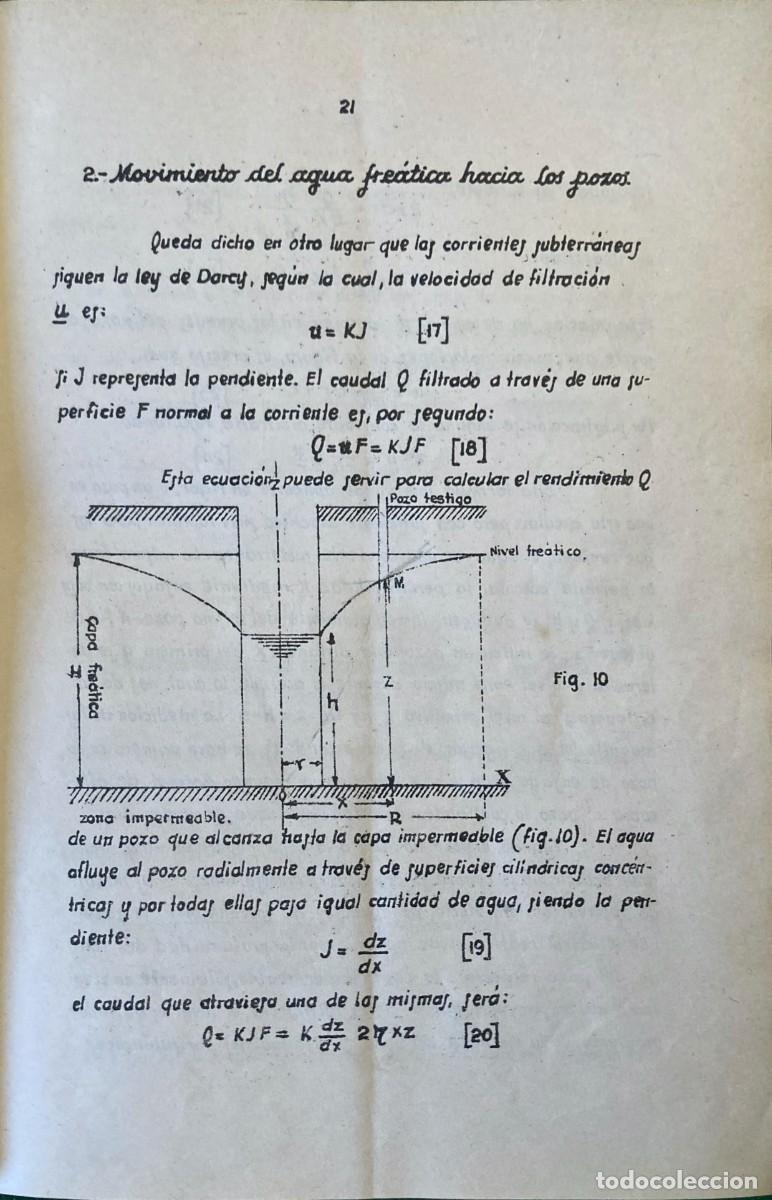 21
2.- Movimiento del agua freática hacia los pozos.
Queda dicho en otro lugar que las corrientes subterráneas
siguen la ley de Darcy, según la cual, la velocidad de filtración
u es:
u = KJ [17]
si J representa la pendiente. El caudal Q filtrado a través de una su-
perficie F normal a la corriente es, por segundo:
Q = uF = KJF [18]
Esta ecuación puede servir para calcular el rendimiento Q
Z
Pozo testigo
Nivel freático.
M
Capa freática
H
h
z
Fig. 10
r
X
0
x
R
zona impermeable.
de un pozo que alcanza hasta la capa impermeable (fig.10). El agua
afluye al pozo radialmente a través de superficies cilíndricas concén-
tricas y por todas ellas pasa igual cantidad de agua, siendo la pen-
diente:
J = dz/dx [19]
el caudal que atraviesa una de las mismas, será:
Q = KJF = K dz/dx 2πxz [20]
todocoleccion